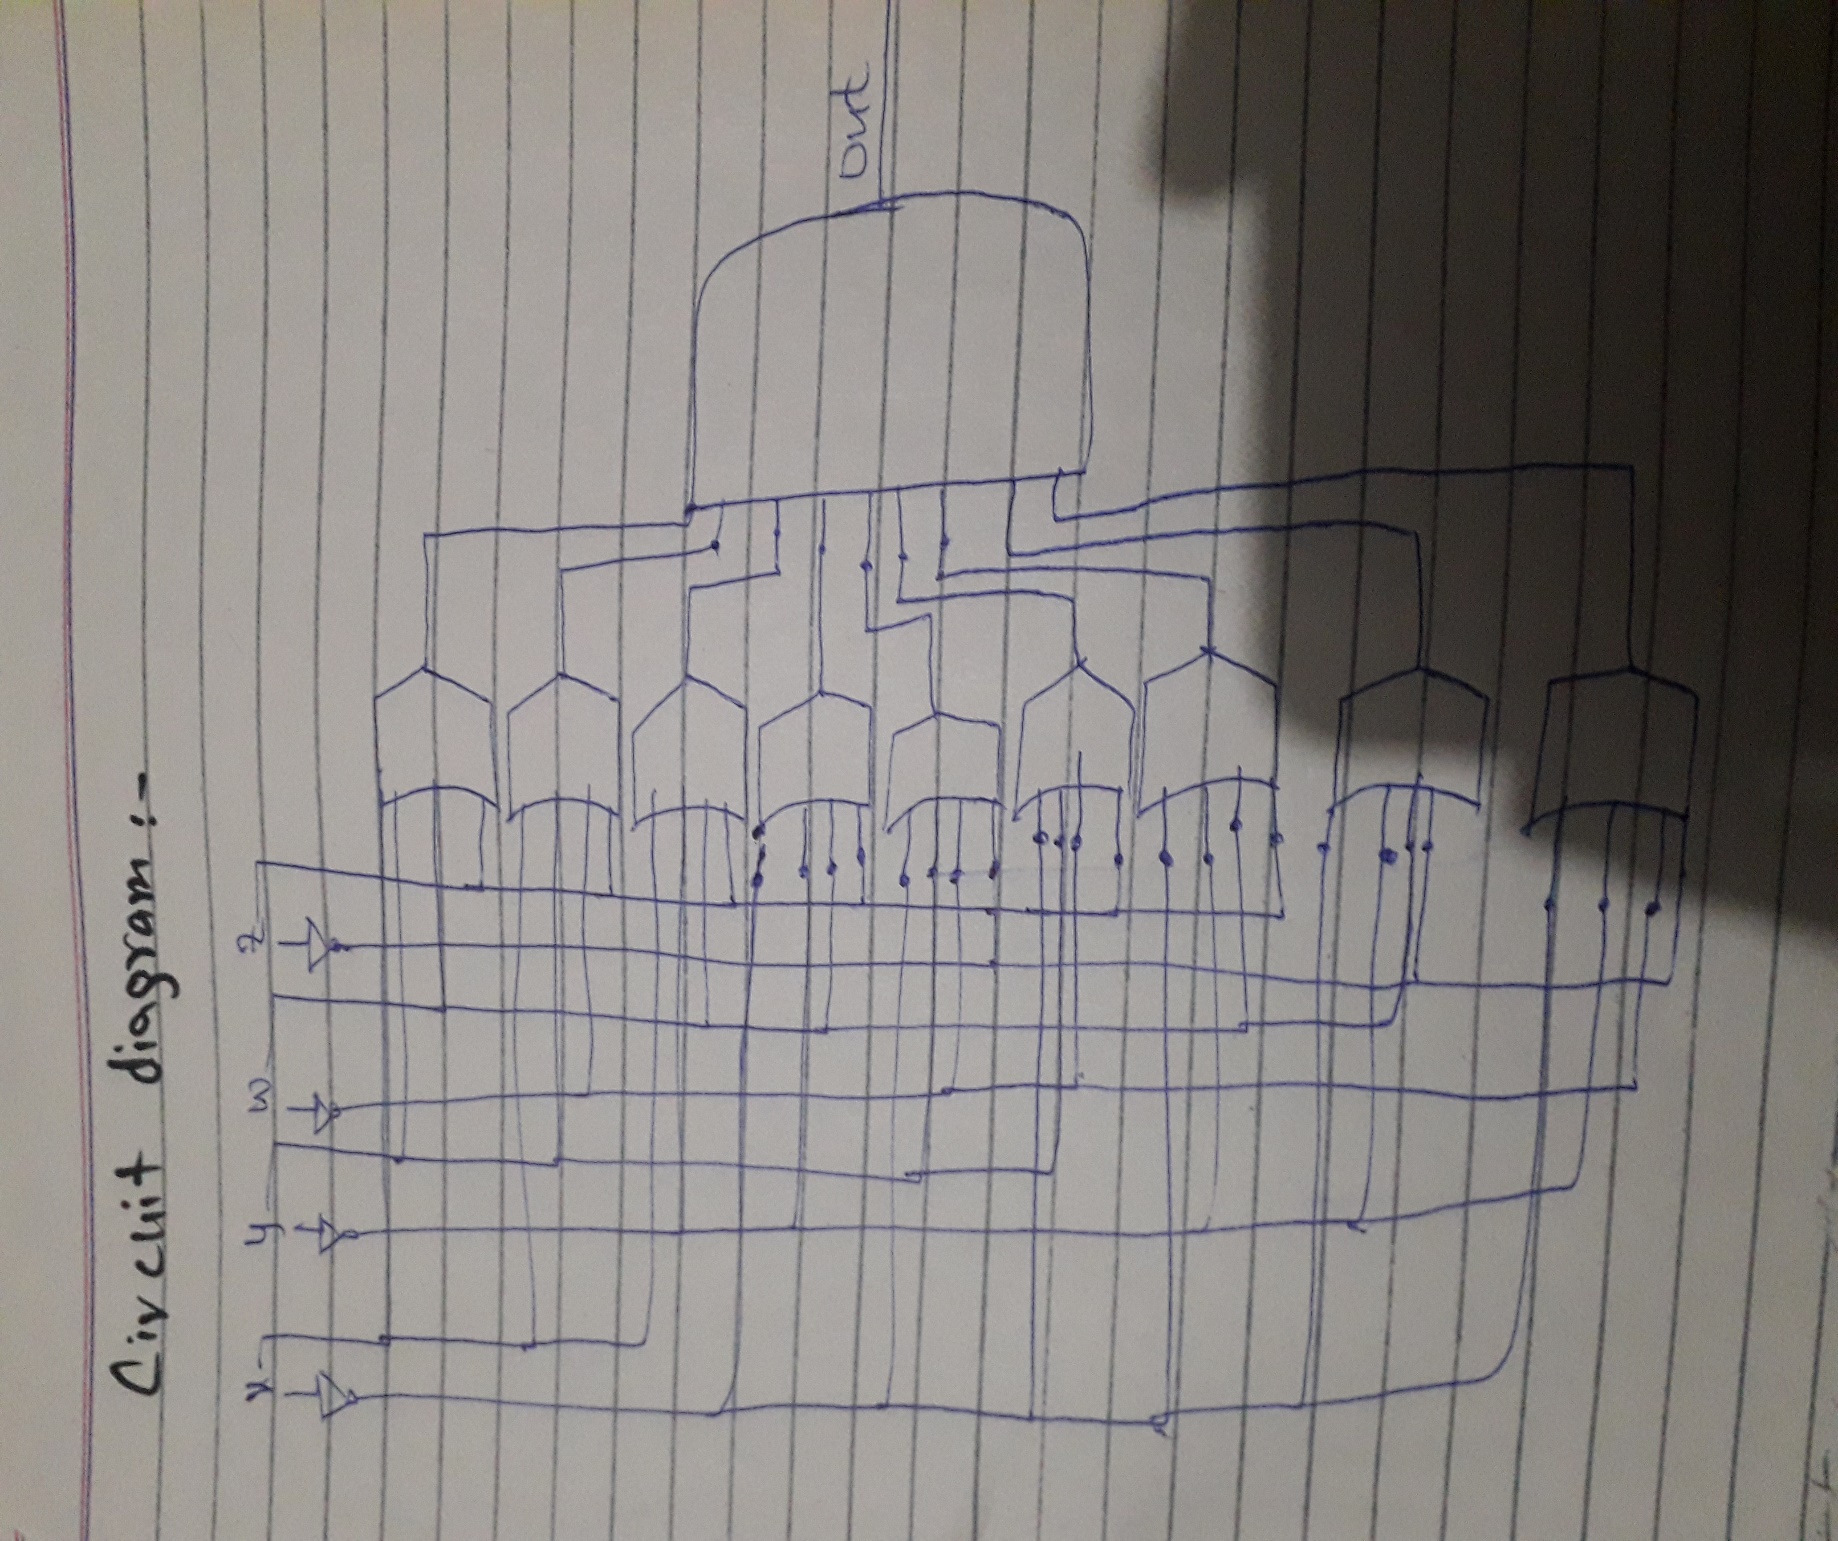 Circuit diagram :-
x y w z
Out